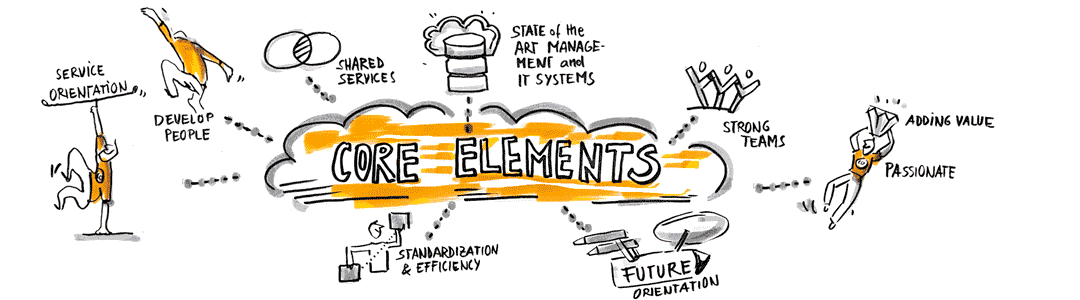 SERVICE
ORIENTATION
DEVELOP
PEOPLE
SHARED
SERVICES
STATE of the
ART MANAGE-
MENT and
IT SYSTEMS
STRONG
TEAMS
ADDING VALUE
PASSIONATE
CORE ELEMENTS
STANDARDIZATION
& EFFICIENCY
FUTURE
ORIENTATION